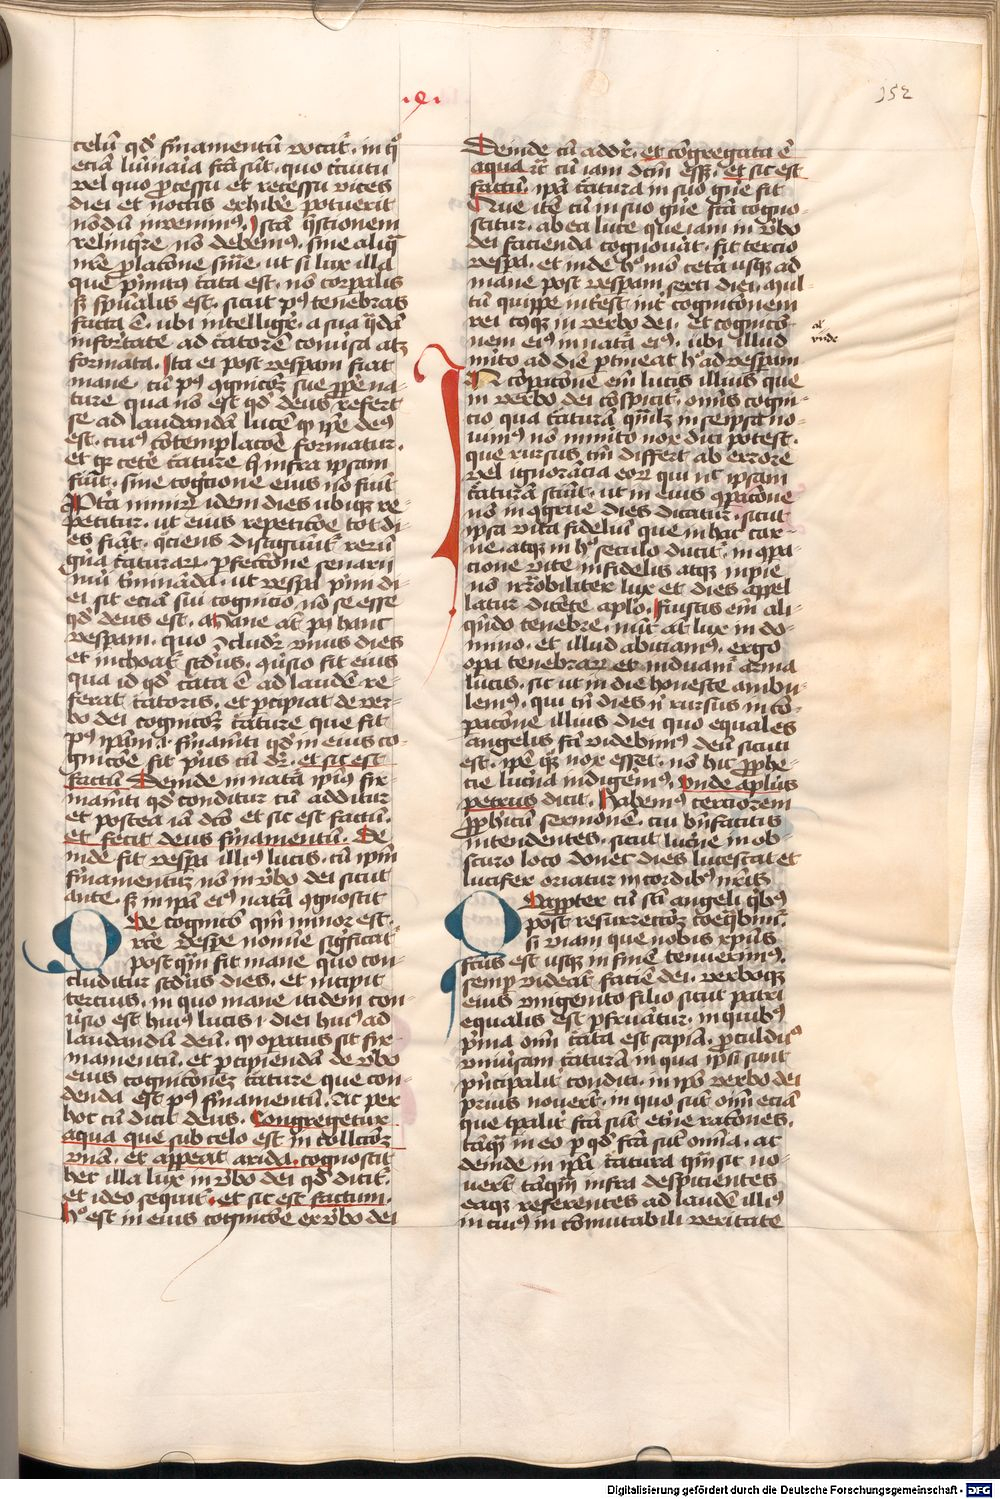 .9.
152
celū qđ firmamentū vocat᷑ . in q°
eciam lūnaria fc̄a sūt . quo c̄cuitu
vel quo p̱cessu et recessu vices
diei et noctis exhibe᷑ potuerit
nōdū inuenim⁹ . Istā q̄stionem
relinq̄re nō debem⁹ . sine aliq̄
nr̄e p̱lac̄one sn̄ie . ut si lux illa
que pᵢmit⁹ c̄ata est . nō corpalis
sꝫ sp̄ualis est . sicut p⁹ tenebras
facta ē . ubi intelligr̄ . a sua q̄dā
informitate ad c̄atorē conu̓sa atꝫ
formata . Ita ei post vespam fiat
mane . cū p⁹ cognicōꝫ sue p̱p̱e na-
ture qua nō est qđ deus refert
se ad laudandā lucē q̄ ip̄e de⁹
est . cui⁹ cōtemplacōe formatur .
et qꝛ cetē c̄ature q̄ infra ipsam
fiūt . sine cogīcione eius nō fiūt
Pᵗa nimiꝝ idem dies ubiqꝫ re-
petitur . ut eius repeticōe tot di-
es fiāt . q̄ciens distīguūt᷑ rerū
gn̄a c̄aturaꝝ . p̱feccione senarii
nūi t̓mināda . ut vespa pᵢmi di-
ei sit eciā sui cognicio . nō se esse
qđ deus est . Mane aūt p⁹ hanc
vespam . quo ↄ̄cludr̄ vnus dies
et inchoat᷑ scd̓us . ↄu̓sio sit eius
qua id qđ c̄ata ē ad laudē re-
ferat c̄atoris . et p̱cipiat de ver-
bo dei cognicōꝫ c̄ature que fit
p⁹ ip̄am . i . firmam̄ti qđ in eius co-
gnicōe fit pᵢus cū dr̄ . et sic est
factū Deinde in natᵃ ip̄i⁹ fir-
mam̄ti qđ conditur cū additur
et postea iā dc̄o et sic est factū .
et fecit deus firmamentū . De
inde fit vespa illi⁹ lucis . cū ip̄m
firmamentūꝫ nō in v̓bo dei sicut
ante . sꝫ in ip̄a ei⁹ natᵃ ↄgnoscit
Que cognico̓ qm̄ minor est .
rc̄e vesp̱e nomīe sigficat᷑
post qm̄ fit mane quo con-
cluditur scd̓us dies . et incipit
tercius . in quo mane itidem con-
u̓sio est hui⁹ lucis . i . diei hui⁹ ad
laudandū deū . q̄ opatus sit fir-
mamentū . et p̱cipiendā de v̓bo
eius cognicōneꝫ c̄ature que con-
denda est p⁹ firmamentū . Ac per
hoc cū dicit deus . Congregetur
aqua que sub celo est in collc̄oꝫ
vnā . et appeat arida . cognoscit
hec illa lux in v̓bo dei qđ dicit᷑ .
et ideo sequit᷑ . et sic est factum .
h° est in eius cognicōe ex v̓bo dei
Deinde cū addit᷑ . et cōgregata ē
aqua rc̄ cū iam dc̄m esset . et sic est
factū . ip̄a c̄atura in suo gn̄e fit
Que itē cū in suo gn̄e fc̄a cogno-
scitur . ab ea luce que iam in v̓bo
dei facienda cognou̓at . fit tercio
vespa . et inde h° mō cet̓a usqꝫ ad
mane post vespam sexti diei . Mul
tū quippe int̓est . int̓ cognicōnem
rei cuiusqꝫ in verbo dei . et cognicō-
nem ei⁹ in natᵃ ei⁹ . ubi illud
m̓ito ad diē p̱tineat h° ad vespam
al'
vnde
In cōpacōne em̄ lucis illius que
in verbo dei cōspicit᷑ . om̄is cogni-
cio qua c̄aturā qm̄lꝫ in seipsa no-
uim⁹ nō inm̓ito nox dici potest .
que rursus tm̄ differt ab errore
vel ignorācia eoꝝ qui nec ipsam
c̄aturā sciūt . ut in eius ↄpacōne
nō incongrue dies dicatur . sicut
ipsa vita fideliū que in hac car-
ne . atqꝫ in h° seculo ducit᷑ . in ↄpa-
cione vite infidelis atqꝫ inpie
nō irrōnabiliter lux et dies appel
latur . dicēte aplō . Fuistis em̄ ali-
qn̄do tenebre . nūc at̄ lux in do-
mino . et illud abiciam⁹ . ergo
opa tenebraꝝ et induam᷑ arma
lucis . sic ut in die honeste ambu-
lem⁹ . qui tn̄ dies n̓ rursus in cō-
pacōne illius diei quo equales
angelis fc̄i videbim⁹ deū sicuti
est . ip̄e qꝫ nox esset . nō hic p̱phe-
cie lucn̄a indigem⁹ . vnde aplūs
petrus dicit . Habem⁹ certiorem
p̱pheticū sermonē . cui bn̄ facitis
intendentes . sicut lucn̄e in ob-
scuro loco donec dies lucescat et
lucifer oriatur in cordib⁹ nr̄is
Quapp̱ter cū sc̄i angeli q̄b⁹
post resurrectōꝫ coeq̄bimur .
si viam que nobis xp̄us
fc̄us est usqꝫ in finē tenuerim⁹ .
semp̱ videāt faciē dei . verboqꝫ
eius vnigenito filio sicut patri
equalis est p̱fruātur . in quib⁹
pᵢma om̄i c̄ata est sapīa . p̱culdꝫ
vniu̓sam c̄aturā in qua ipsi sunt
pᵢncipalit̓ conditi . in ip̄o verbo dei
prius nouer̄t . in quo sūt om̄i eciā
que tp̱alit̓ fc̄a sūt et̓ne rac̄ones .
tāqᵃ in eo p̱ qđ fc̄a sūt om̄ia . ac
deinde in ip̄a c̄atura qm̄ sic no-
uer̄t tāqᵃ infra despicientes
eaqꝫ referentes ad laudē illi⁹
in cui⁹ incōmutabili veritate
Digitalisierung gefördert durch die Deutsche Forschungsgemeinschaft - DFG